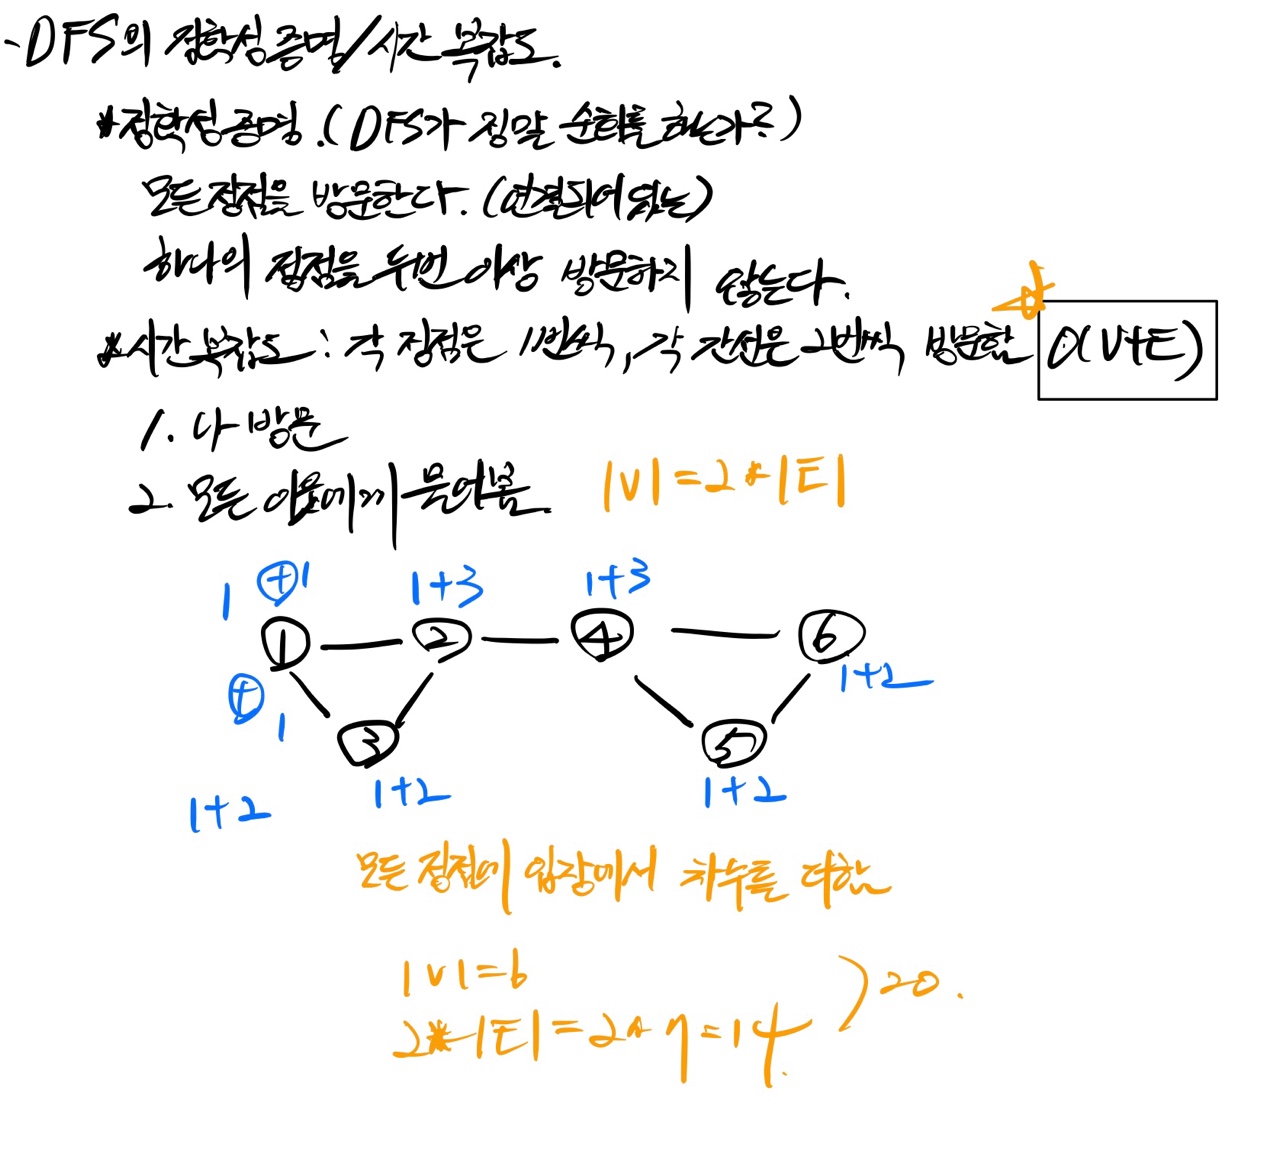 -DFS의 정확성 증명/시간 복잡도.
*정확성 증명.(DFS가 정말 순회를 하는가?)
모든 정점을 방문한다.(연결되어 있는)
하나의 정점을 두번 이상 방문하지 않는다.
*시간 복잡도 : 각 정점은 1번씩, 각 간선은 2번씩 방문함 O(V+E)
1. 나 방문
2. 모든 이웃에게 물어봄. |V|=2*|E|
1 +1 1+3 1+3
1 2 4 6
+ 1 1+2
3 5
1+2 1+2 1+2
모든 정점에 입장에서 차수를 더함
|V|=6
2*|E|=2*7=14. )20.